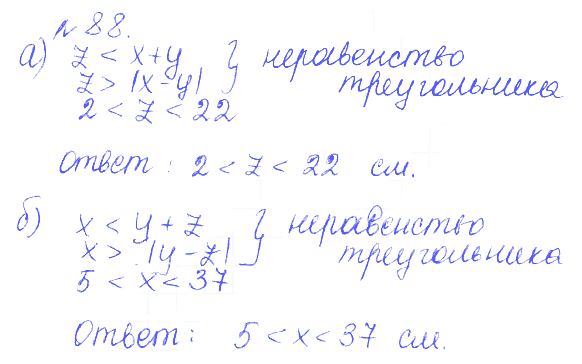 № 88.
а) z < x+y } неравенство
z > |x-y| треугольника
2 < z < 22
Ответ: 2 < z < 22 см.
б) x < y + z } неравенство
x > |y - z| треугольника
5 < x < 37
Ответ: 5 < x < 37 см.